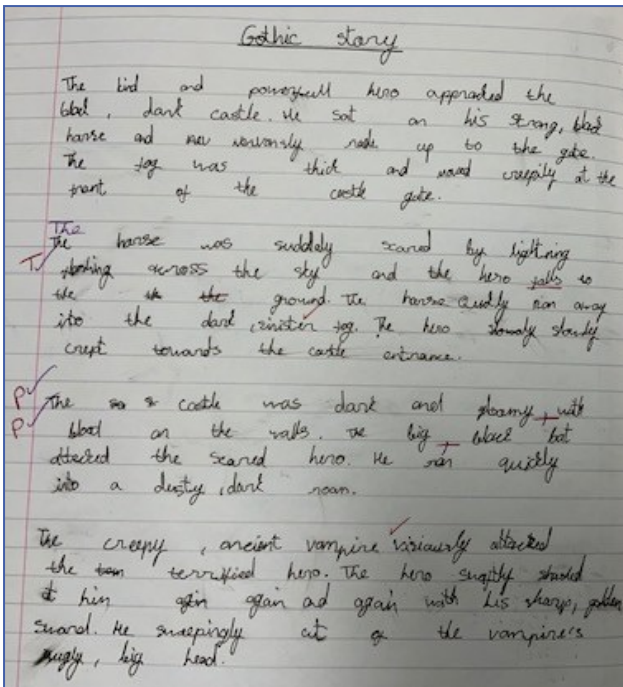 Gothic story
The bird and powerfull hero appraded the
blad, dark castle. He sat on his strong, blad
horse and nervously rode up to the gate.
The fog was thick and moved creepily at the
front of the castle gate.
The
The horse was suddely scared by lightning
T flashing across the sky and the hero falls to
the the ground. The horse Quidly ran away
into the dark, sinister fog. The hero slowly
crept towards the castle entrance.
P The castle was dark and gloomy, with
P blood on the walls. The big, black bat
attacked the scared hero. He ran quickly
into a dusty, dark room.
The creepy, ancient vampire viciously attacked
the terrified hero. The hero
at him again ad again with his sharp, golden
sword. He sweepingly cut of the vampire's
ugly, big head.